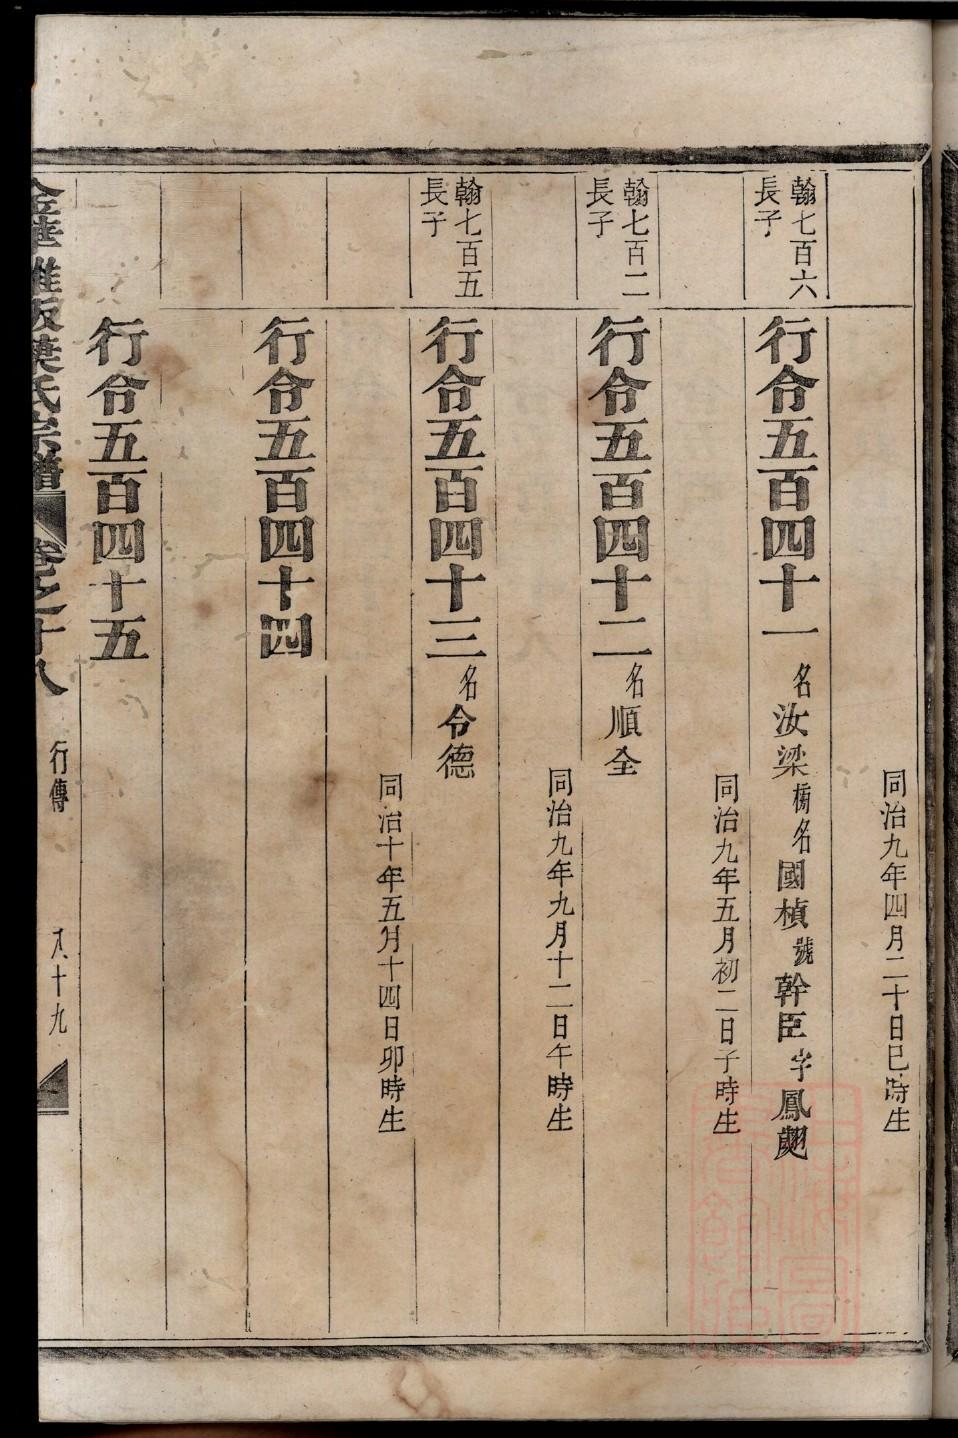 同治九年四月二十日巳時生
翰七百六
長子
行令五百四十一 名汝梁 榜名國楨 號幹臣 字鳳翽
同治九年五月初二日子時生
翰七百二
長子
行令五百四十二 名順全
同治九年九月十二日午時生
翰七百五
長子
行令五百四十三 名令德
同治十年五月十四日卯時生
行令五百四十四
行令五百四十五
金華 氏宗譜 卷之十八 行傳 八十九